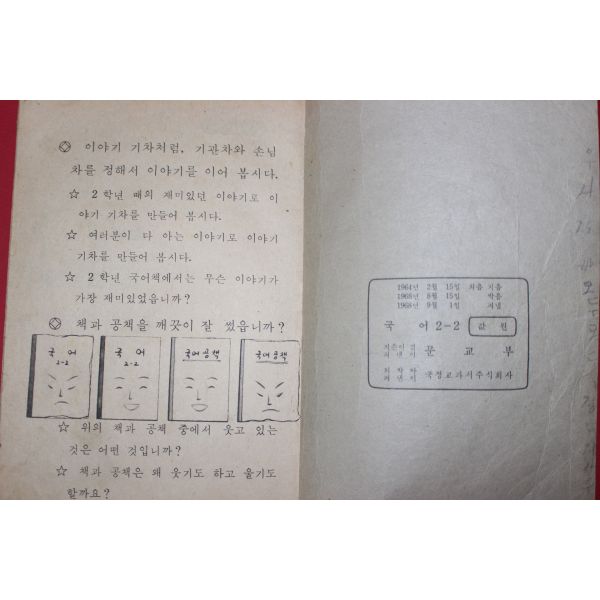 이야기 기차처럼, 기관차와 손님
차를 정해서 이야기를 이어 봅시다.
☆ 2학년 때의 재미있던 이야기로 이
야기 기차를 만들어 봅시다.
☆ 여러분이 다 아는 이야기로 이야기
기차를 만들어 봅시다.
☆ 2학년 국어책에서는 무슨 이야기가
가장 재미있었읍니까?
책과 공책을 깨끗이 잘 썼읍니까?
국어
2-2
국어
2-2
국어 공책
국어 공책
☆ 위의 책과 공책 중에서 웃고 있는
것은 어떤 것입니까?
☆ 책과 공책은 왜 웃기도 하고 울기도
할까요?
1964년 2월 15일 처음 지음
1968년 8월 15일 박음
1968년 9월 1일 펴냄
국 어 2-2 값 원
지은이 겸
펴낸이 문 교 부
국정교과서주식회사